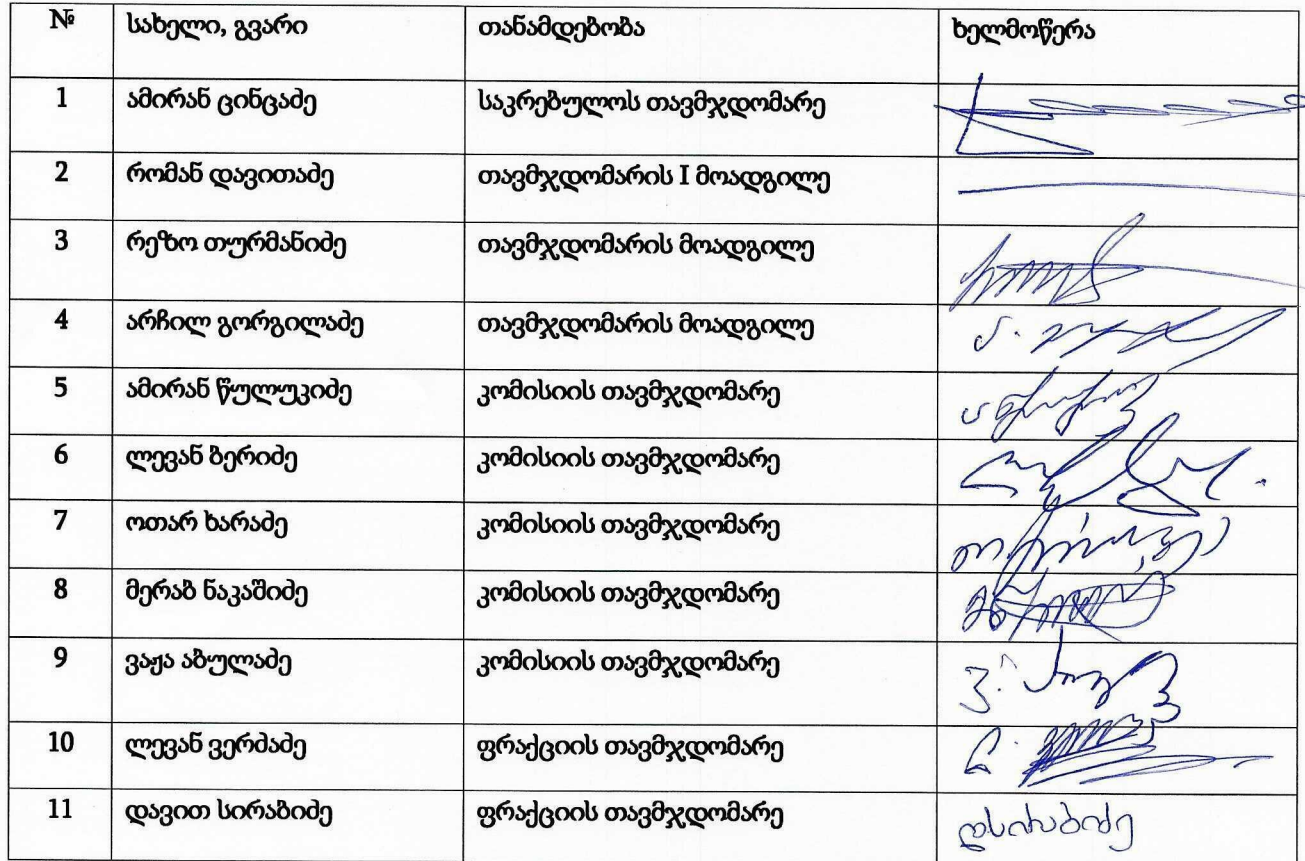 № სახელი, გვარი თანამდებობა ხელმოწერა
1 ამირან ცინცაძე საკრებულოს თავმჯდომარე
2 რომან დავითაძე თავმჯდომარის I მოადგილე
3 რეზო თურმანიძე თავმჯდომარის მოადგილე
4 არჩილ გორგილაძე თავმჯდომარის მოადგილე
5 ამირან წულუკიძე კომისიის თავმჯდომარე
6 ლევან ბერიძე კომისიის თავმჯდომარე
7 ოთარ ხარაძე კომისიის თავმჯდომარე
8 მერაბ ნაკაშიძე კომისიის თავმჯდომარე
9 ვაჟა აბულაძე კომისიის თავმჯდომარე
10 ლევან ვერძაძე ფრაქციის თავმჯდომარე
11 დავით სირაბიძე ფრაქციის თავმჯდომარე დსირაბიძე